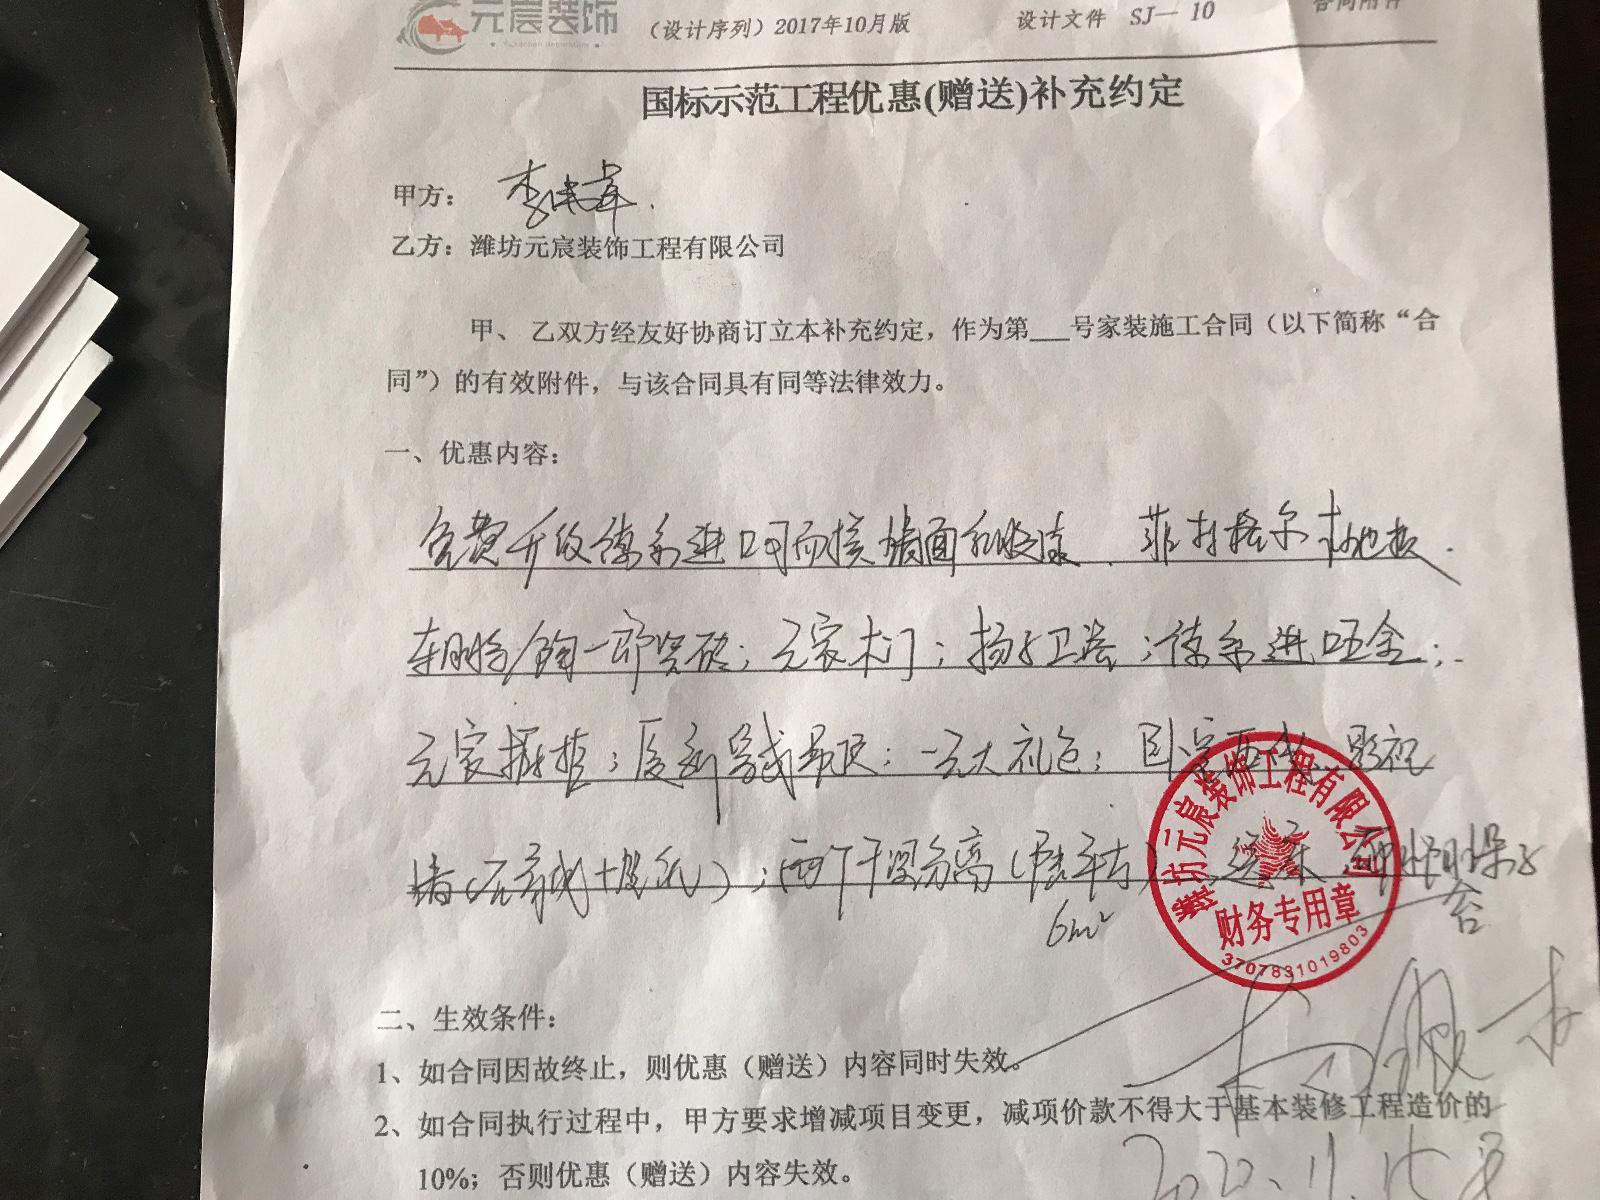 元宸装饰 (设计序列) 2017年10月版 设计文件 SJ— 10 合同附件
国标示范工程优惠(赠送)补充约定
甲方：李
乙方：潍坊元宸装饰工程有限公司
甲、 乙双方经友好协商订立本补充约定，作为第___号家装施工合同（以下简称“合
同”）的有效附件，与该合同具有同等法律效力。
一、优惠内容：
免费升级德系进口 墙面乳胶漆、菲林格尔木地板.
/ 瓷砖；元家木门；扬子卫浴；德系进口五金；
元家 ； 吊顶；一元大礼包；卧室 影视
墙( )；两个干湿分离( 平方)
6m²
台
潍坊元宸装饰工程有限公司
财务专用章
3707831019803
二、生效条件：
1、如合同因故终止，则优惠（赠送）内容同时失效。
2、如合同执行过程中，甲方要求增减项目变更，减项价款不得大于基本装修工程造价的
10%；否则优惠（赠送）内容失效。
2022.11.